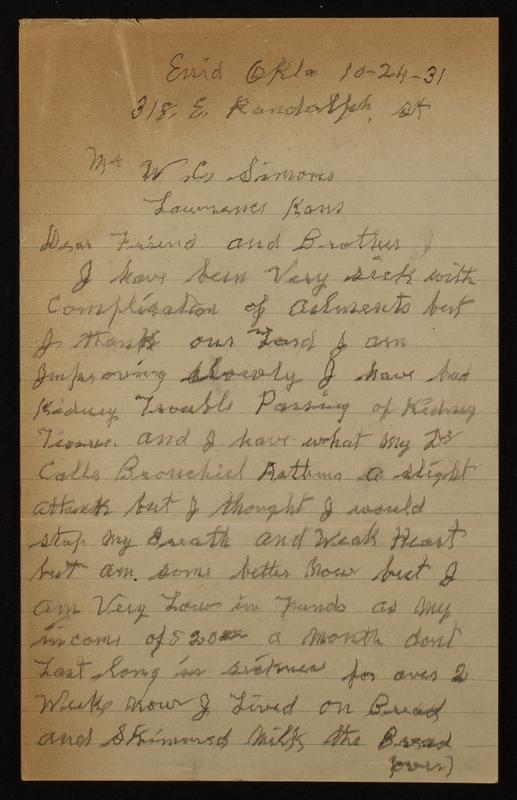 Enid Okla 10-24-31
318. E. Randolph. St
Mr W Ls Simons
Lawrence Kans
Dear Friend and Brother
I have been Very sick with
Complication of ailments but
I thank our Lord I am
Improving slowly I have had
Kidney Trouble Passing of Kidney
Tissue. and I have what my Dr
Calls Bronchiel Asthma a slight
attack but I thought I would
stop my Breath and Weak Heart
but am some better Now but I
am Very Low in Funds as my
income of $20 a Month dont
Last Long in sickness for over 2
Weeks now I Lived on Bread
and Skimmed Milk the Bread
(over)